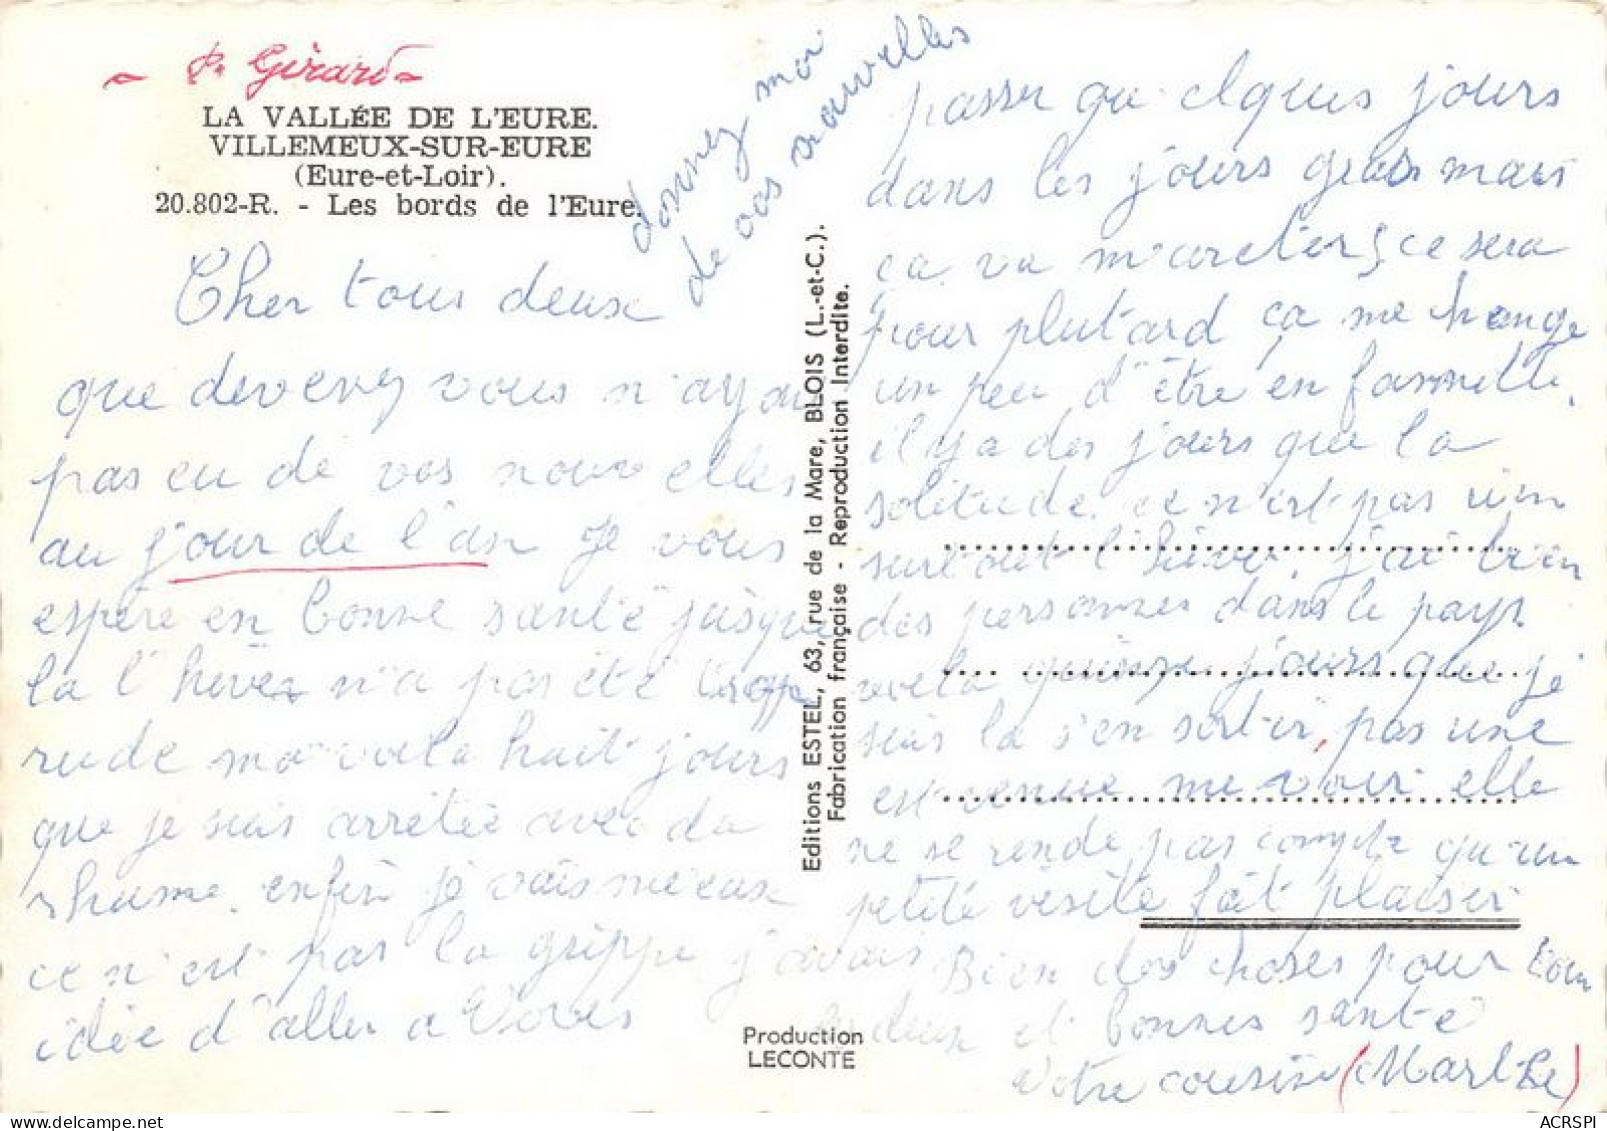 ~ P. Girard ~
LA VALLÉE DE L'EURE.
VILLEMEUX-SUR-EURE
(Eure-et-Loir).
20.802-R. - Les bords de l'Eure.
Cher tous deux
que devenez vous n'ayan
pas eu de vos nouvelles
au jour de l'an Je vous
espère en bonne santé jusque
la l'hiver n'a pas été trop
rude moi voila huit jours
que je suis arrêtée avec du
rhume. enfin je vais mieux
ce n'est pas la grippe j'avais
idée d'aller a Voves
passer quelques jours
dans les jours gras mais
ça va m'arreter, ce sera
pour plutard ça me change
un peu d'être en famille.
il y a des jours que la
solitude ce n'est pas rien
surtout l'hiver, j'ai bien
des personnes dans le pays
voila quinze jours que je
suis la s'en sortir, pas une
est venue me voir elle
ne se rende pas compte qu'un
petite visite fait plaisir
Bien des choses pour tous
les deux et bonnes santé
Votre cousine (Marthe)
donnez moi
de vos nouvelles
Editions ESTEL, 63, rue de la Mare, BLOIS (L.-et-C.).
Fabrication française - Reproduction Interdite.
Production
LECONTE
ACRSPI